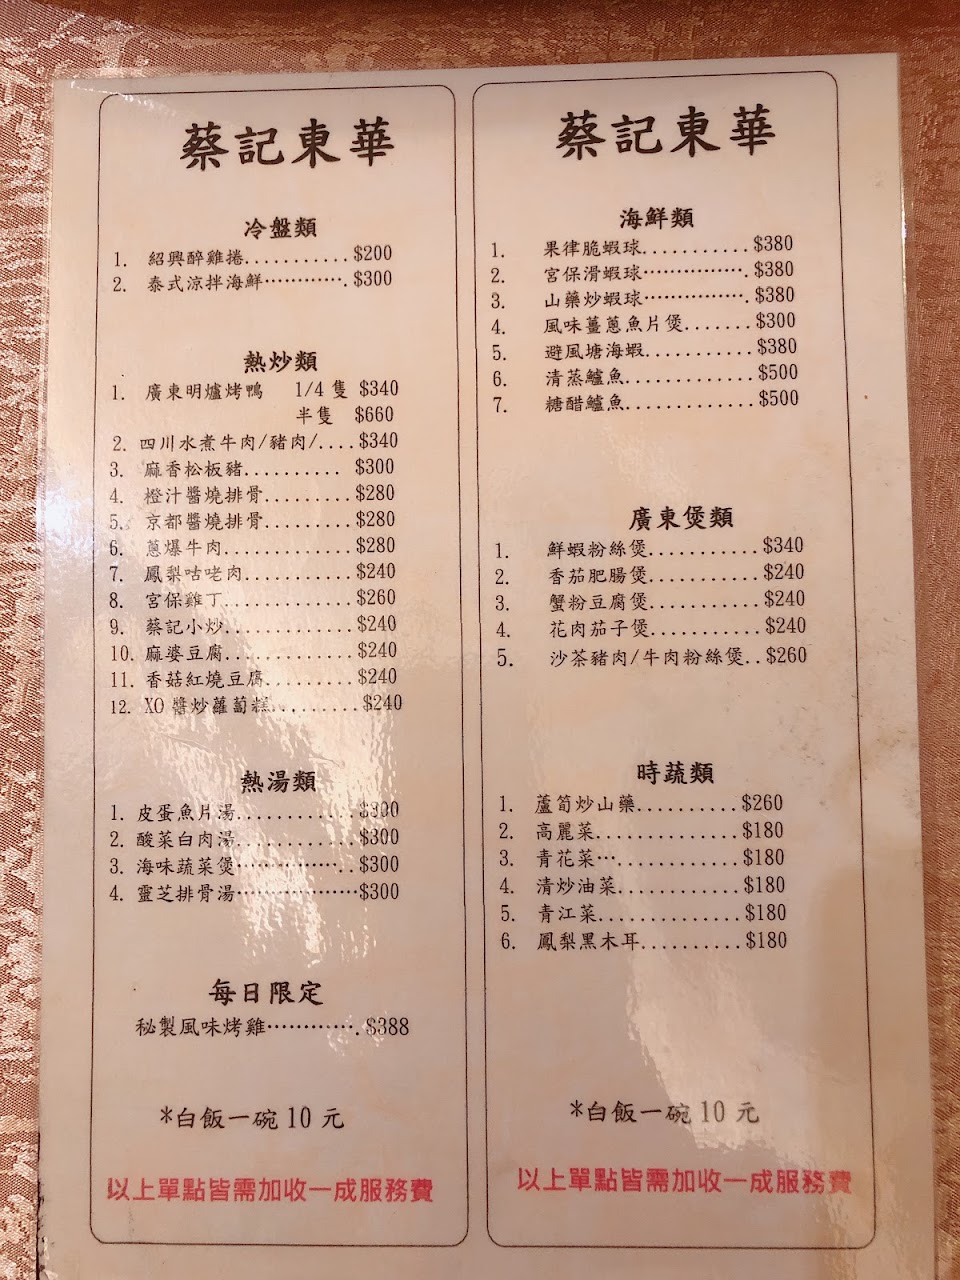 蔡記東華
冷盤類
1. 紹興醉雞捲...........$200
2. 泰式涼拌海鮮………….$300
熱炒類
1. 廣東明爐烤鴨 1/4 隻 $340
半隻 $660
2. 四川水煮牛肉/豬肉/....$340
3. 麻香松板豬.......... $300
4. 橙汁醬燒排骨.........$280
5. 京都醬燒排骨.........$280
6. 蔥爆牛肉.............$280
7. 鳳梨咕咾肉...........$240
8. 宮保雞丁.............$260
9. 蔡記小炒.............$240
10. 麻婆豆腐.............$240
11. 香菇紅燒豆腐.........$240
12. XO 醬炒蘿蔔糕.........$240
熱湯類
1. 皮蛋魚片湯............$300
2. 酸菜白肉湯............$300
3. 海味蔬菜煲…………...$300
4. 靈芝排骨湯………………$300
每日限定
秘製風味烤雞………….$388
*白飯一碗 10 元
以上單點皆需加收一成服務費
蔡記東華
海鮮類
1. 果律脆蝦球...........$380
2. 宮保滑蝦球…………….$380
3. 山藥炒蝦球…………….$380
4. 風味薑蔥魚片煲.......$300
5. 避風塘海蝦...........$380
6. 清蒸鱸魚.............$500
7. 糖醋鱸魚.............$500
廣東煲類
1. 鮮蝦粉絲煲...........$340
2. 香茄肥腸煲...........$240
3. 蟹粉豆腐煲...........$240
4. 花肉茄子煲...........$240
5. 沙茶豬肉/牛肉粉絲煲..$260
時蔬類
1. 蘆筍炒山藥..........$260
2. 高麗菜..............$180
3. 青花菜…............$180
4. 清炒油菜............$180
5. 青江菜..............$180
6. 鳳梨黑木耳..........$180
*白飯一碗 10 元
以上單點皆需加收一成服務費